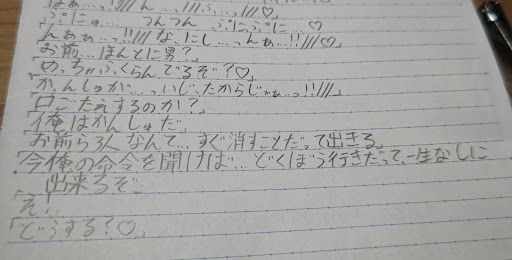 「はぁ…っ!///ん…っ!///ふ…っ///♡」
ぷに。。 つんつん ぷに、ぷに… ♡
「んぁぁ…っ!///な、にし…っんぁ…!!///♡」
「お前…ほんとに男?」
「めっちゃふくらんでるぞ?♡」
「か、んしゅが…っいじったからじゃぁ…っ!!///」
「口ごたえするのか?」
「俺はかんしゅだ」
「お前ら3人なんて…すぐ消すことだって出きる」
「今俺の命令を聞けば…どくぼう行きだって、一生なしに
出来るぞ」
「そ!」
「どうする?♡」